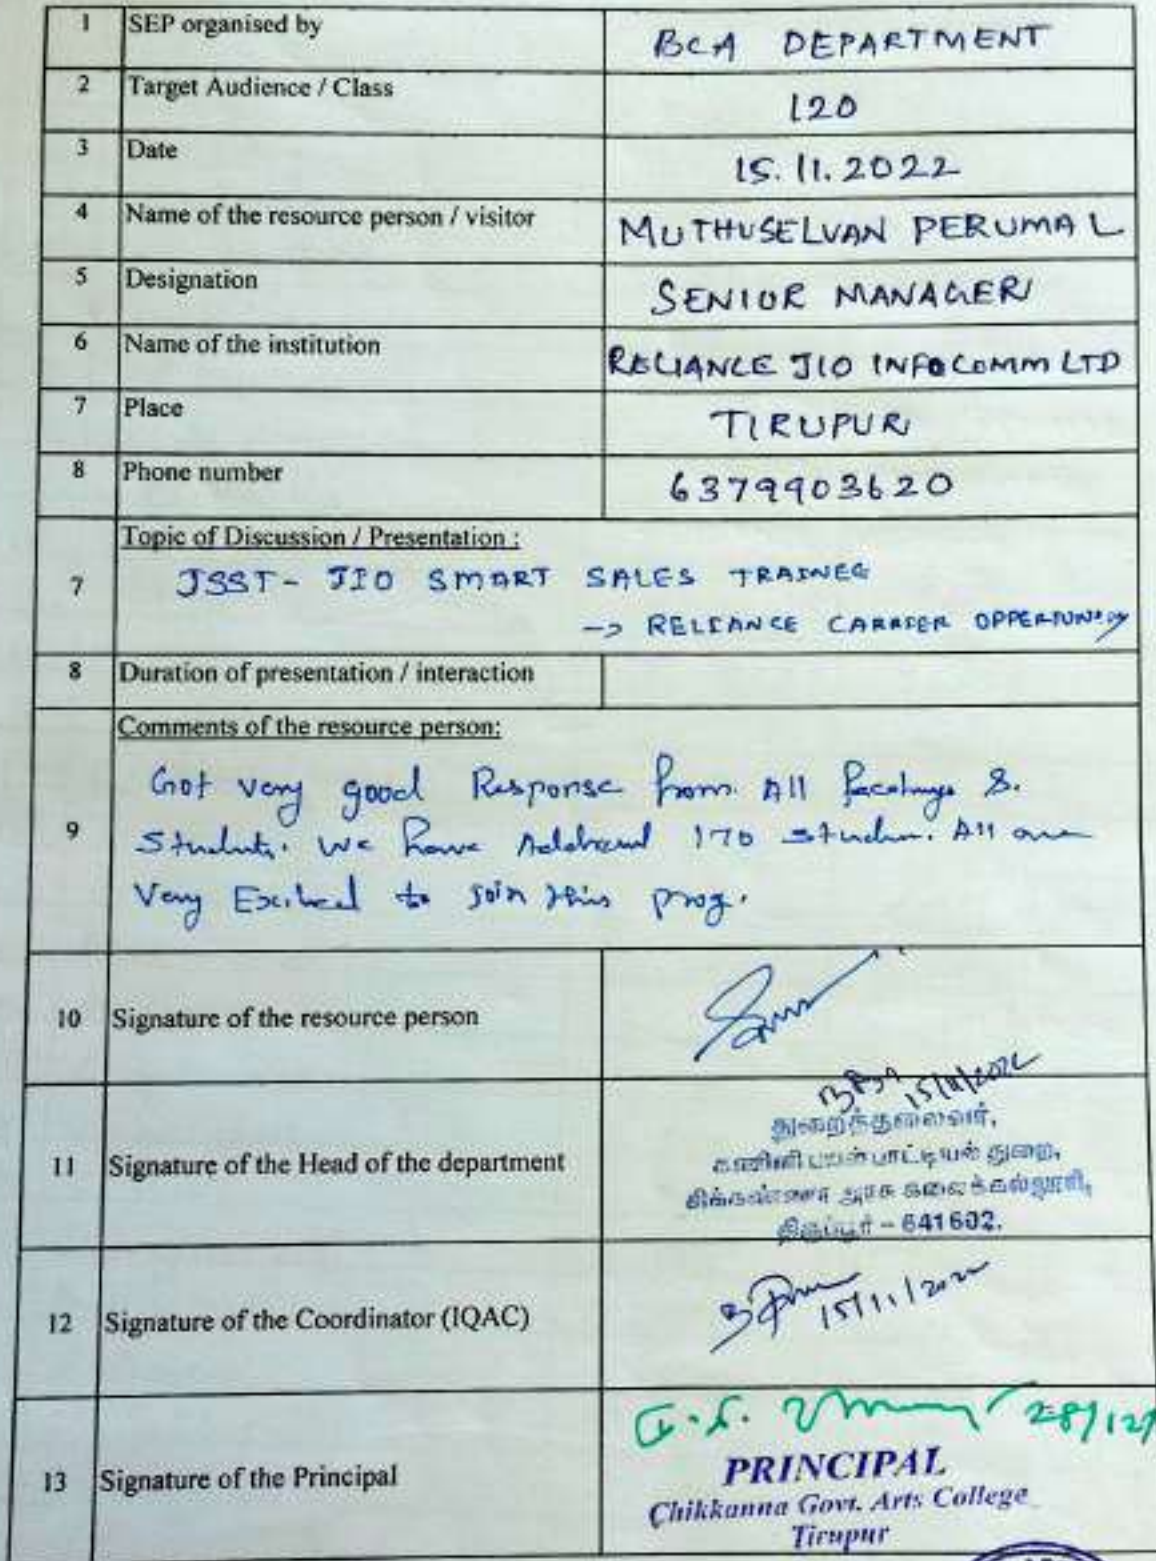 1 SEP organised by BCA DEPARTMENT
2 Target Audience / Class 120
3 Date 15.11.2022
4 Name of the resource person / visitor MUTHUSELVAN PERUMAL
5 Designation SENIOR MANAGER
6 Name of the institution RELIANCE JIO INFOCOMM LTD
7 Place TIRUPUR
8 Phone number 6379903620
Topic of Discussion / Presentation :
7 JSST - JIO SMART SALES TRAINEE
-> RELIANCE CARRIER OPPERTUNITY
8 Duration of presentation / interaction
Comments of the resource person:
Got very good Response from All &
9 Students. We have 170 All are
Very Excited to join this prog.
10 Signature of the resource person
15/11/2022
துறைத்தலைவர்,
11 Signature of the Head of the department கணினி பயன்பாட்டியல் துறை,
சிக்கண்ணா அரசு கலைக்கல்லூரி,
திருப்பூர் – 641602.
12 Signature of the Coordinator (IQAC) 15/11/2022
28/12/
PRINCIPAL
13 Signature of the Principal Chikkanna Govt. Arts College
Tirupur